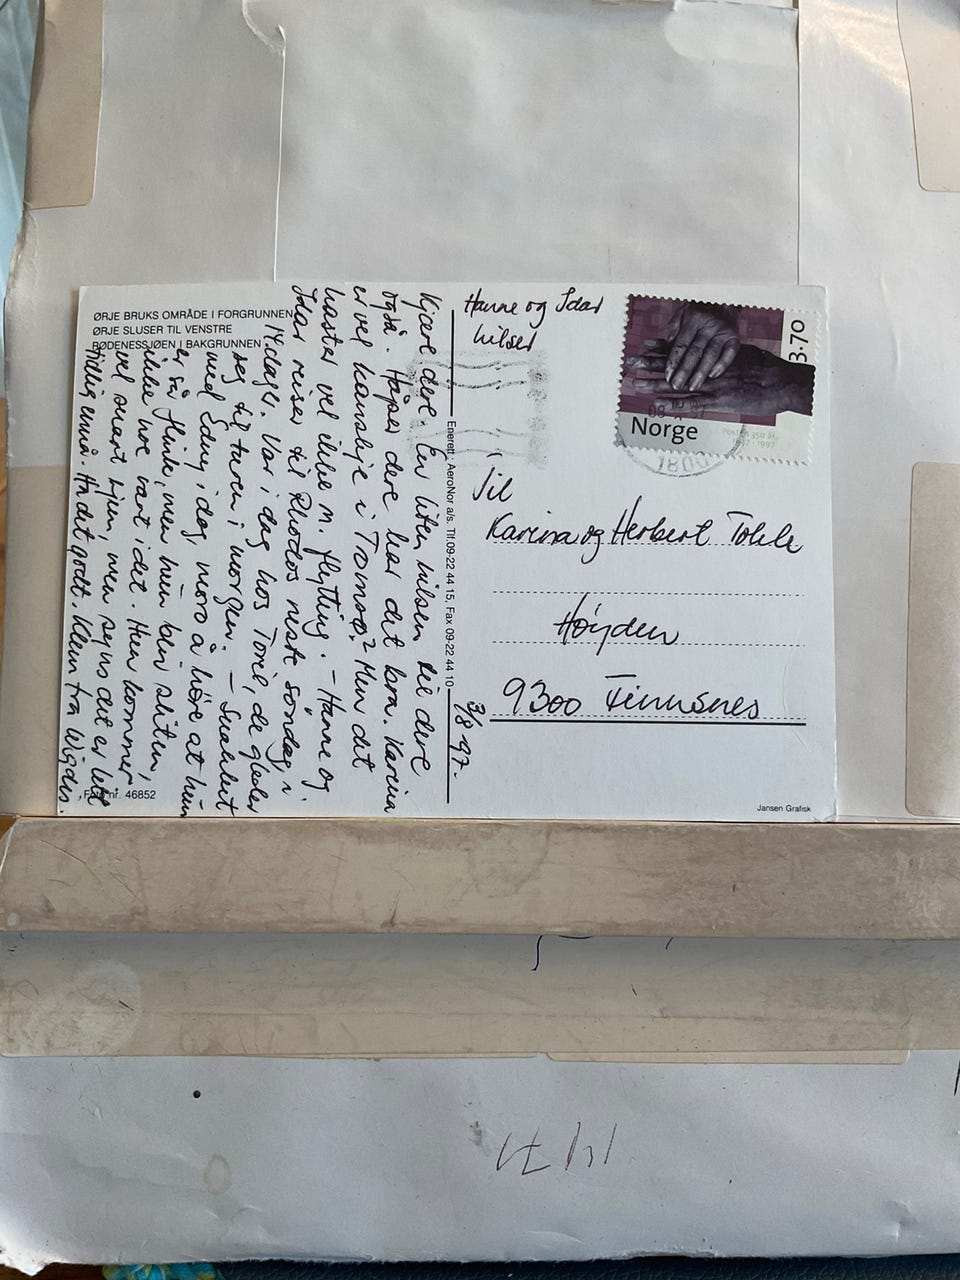 ØRJE BRUKS OMRÅDE I FORGRUNNEN
ØRJE SLUSER TIL VENSTRE
RØDENESSJØEN I BAKGRUNNEN
3/8-97.
Kjære dere. En liten hilsen til dere
også. Håper dere har det bra. Karina
er vel kanskje i Tromsø? Men det
haster vel ikke m. flytting. - Hanne og
Idar reiser til Rhodos neste søndag, i
14 dager. Var i dag hos Toril, de gleder
seg til turen i morgen. - Snakket
med Edny i dag, moro å høre at hun
er så flink, men hun blir sliten,
ikke noe rart i det. Hun kommer
vel snart hjem, men syns det er litt
tidlig ennå. Ha det godt. Klem fra Wigdis.
Foto nr. 46852
Enerett: AeroNor a/s. Tlf. 09-22 44 15, Fax 09-22 44 10
Hanne og Idar
hilser
Norge
3.70
Posten 350 år
1647-1997
1800
Til
Karina og Herbert Tohle
Høyden
9300 Finnsnes
Jansen Grafisk